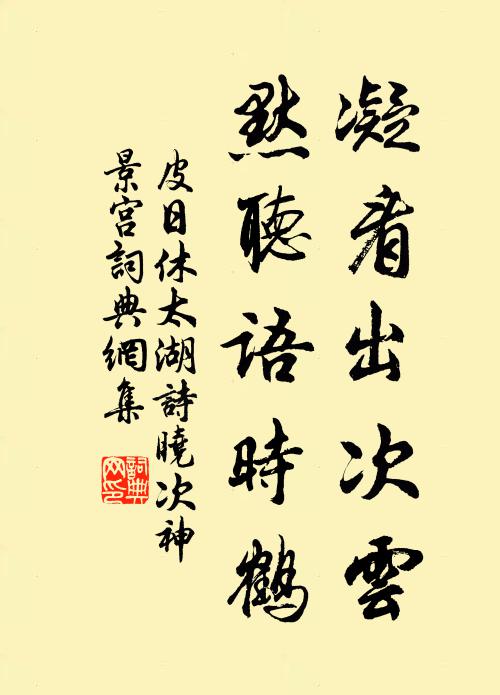 凝看出次雲
默聽語時鶴
皮日休太湖詩曉次神
景宮詞典網集
詞典
网印